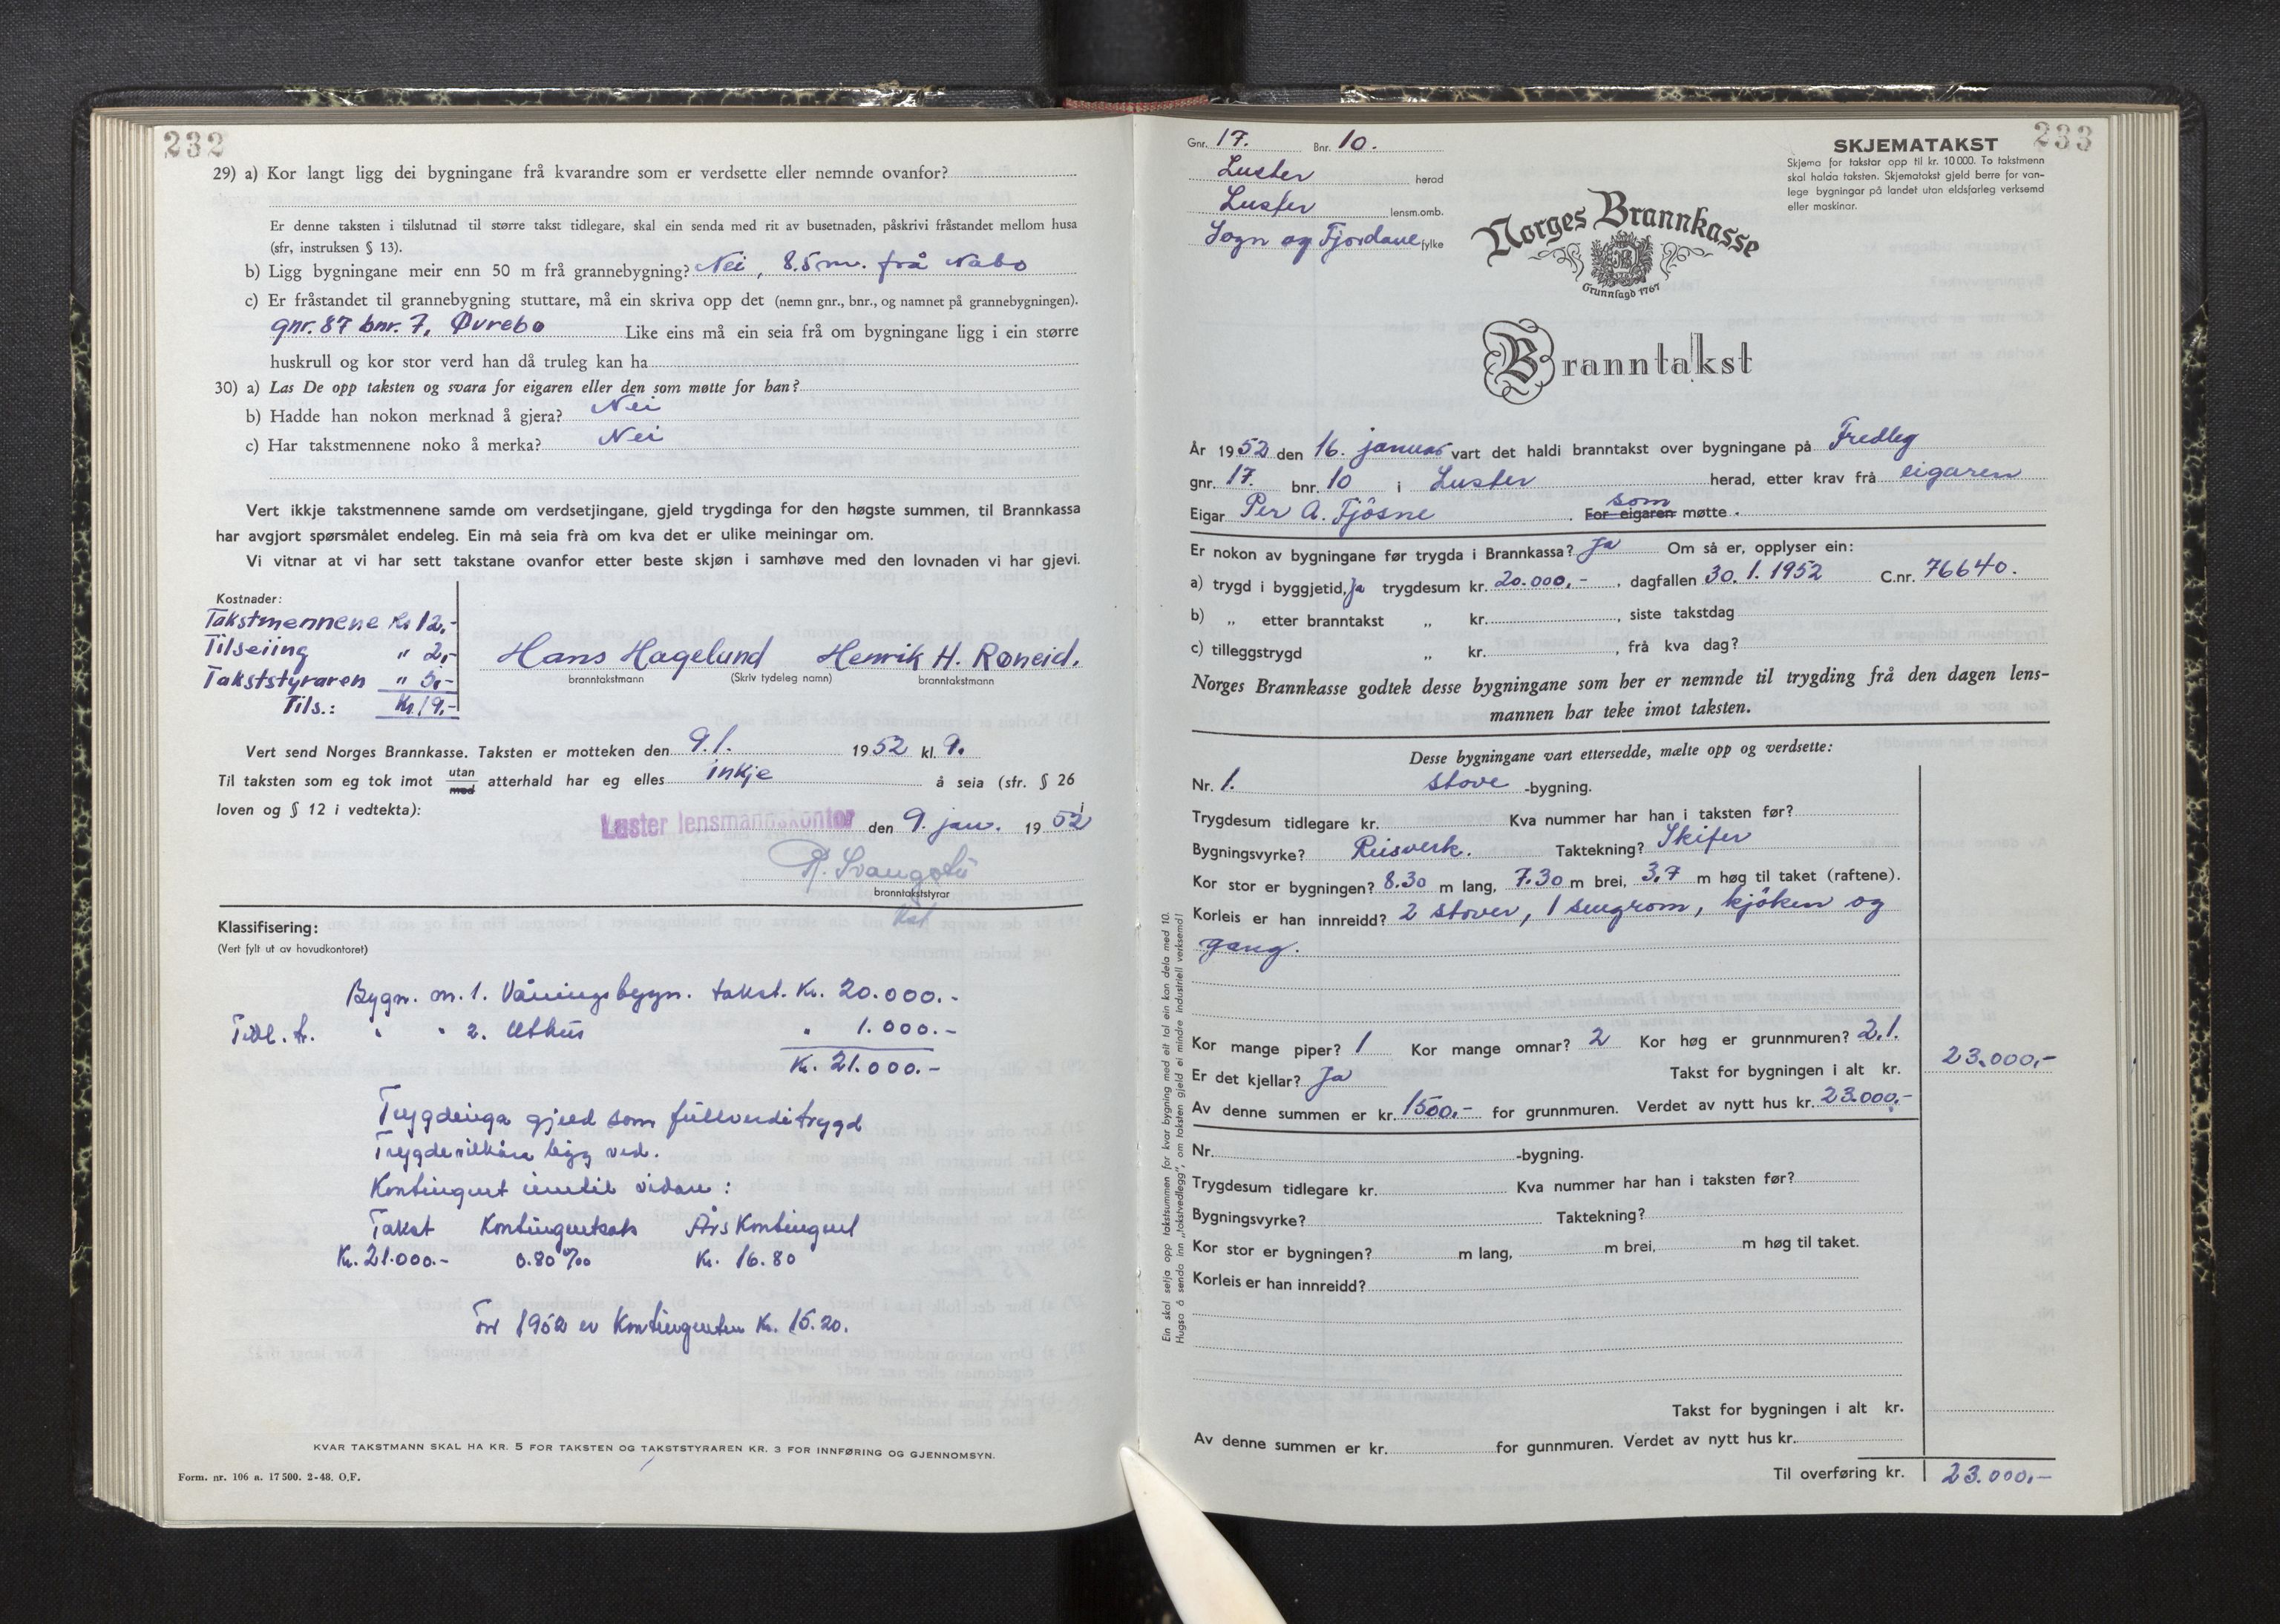 232
29) a) Kor langt ligg dei bygningane frå kvarandre som er verdsette eller nemnde ovanfor?
Er denne taksten i tilslutnad til større takst tidlegare, skal ein senda med rit av busetnaden, påskrivi fråstandet mellom husa
(sfr, instruksen § 13).
b) Ligg bygningane meir enn 50 m frå grannebygning? Nei, 8.5 m. frå Nabo
c) Er fråstandet til grannebygning stuttare, må ein skriva opp det (nemn gnr., bnr., og namnet på grannebygningen).
gnr. 87 bnr. 7, Øvrebo Like eins må ein seia frå om bygningane ligg i ein større
huskrull og kor stor verd han då truleg kan ha
30) a) Las De opp taksten og svara for eigaren eller den som møtte for han?
b) Hadde han nokon merknad å gjera? Nei
c) Har takstmennene noko å merka? Nei
Vert ikkje takstmennene samde om verdsetjingane, gjeld trygdinga for den høgste summen, til Brannkassa
har avgjort spørsmålet endeleg. Ein må seia frå om kva det er ulike meiningar om.
Vi vitnar at vi har sett takstane ovanfor etter beste skjøn i samhøve med den lovnaden vi har gjevi.
Kostnader:
Takstmennene Kr 12,-
Tilseiing " 2,-
Takststyraren " 5,-
Tils.: Kr. 19,-
Hans Hagelund Henrik H. Røneid.
branntakstmann (Skriv tydeleg namn) branntakstmann
Vert send Norges Brannkasse. Taksten er motteken den 9.1. 1952 kl. 9.
Til taksten som eg tok imot utan med atterhald har eg elles inkje å seia (sfr. § 26
loven og § 12 i vedtekta):
Luster lensmannskontor den 9. jan. 1952
branntakststyrar
Klassifisering:
(Vert fylt ut av hovudkontoret)
Bygn. nr. 1. Våningsbygn. takst. Kr. 20.000.-
" " 2. Uthus " 1.000.-
Kr. 21.000.-
Trygdinga gjeld som fullverditrygd
Trygdevilkåra ligg ved.
Kontingent inntil vidare:
Takst Kontingentsats Års Kontingent
Kr. 21.000.- 0.80 ‰ Kr. 16.80
For 1952 er Kontingenten Kr. 15.20.
KVAR TAKSTMANN SKAL HA KR. 5 FOR TAKSTEN OG TAKSTSTYRAREN KR. 3 FOR INNFØRING OG GJENNOMSYN.
Form. nr. 106 a. 17 500. 2-48. O.F.
233
Gnr. 17. Bnr. 10.
Luster herad
Luster lensm.omb.
Sogn og Fjordane fylke
SKJEMATAKST
Skjema for takstar opp til kr. 10 000. To takstmenn
skal halda taksten. Skjematakst gjeld berre for van-
lege bygningar på landet utan eldsfarleg verksemd
eller maskinar.
Norges Brannkasse
Grunnlagd 1767
Branntakst
År 1952 den 16. januar vart det haldi branntakst over bygningane på Fredleg
gnr. 17. bnr. 10 i Luster herad, etter krav frå eigaren
Eigar Per A. Fjøsne. For eigaren som møtte.
Er nokon av bygningane før trygda i Brannkassa? Ja Om så er, opplyser ein:
a) trygd i byggjetid, Ja trygdesum kr. 20.000,-, dagfallen 30.1.1952 C.nr. 76640.
b) „ etter branntakst „ kr. , siste takstdag
c) tilleggstrygd „ kr. , frå kva dag?
Norges Brannkasse godtek desse bygningane som her er nemnde til trygding frå den dagen lens-
mannen har teke imot taksten.
Desse bygningane vart ettersedde, mælte opp og verdsette:
Nr. 1. stove -bygning.
Trygdesum tidlegare kr. Kva nummer har han i taksten før?
Bygningsvyrke? Reisverk. Taktekning? Skifer
Kor stor er bygningen? 8.30 m lang, 7.30 m brei, 3.7 m høg til taket (raftene).
Korleis er han innreidd? 2 stover, 1 sengrom, kjøken og
gang.
Kor mange piper? 1 Kor mange omnar? 2 Kor høg er grunnmuren? 2.1.
Er det kjellar? Ja Takst for bygningen i alt kr. 23.000,-
Av denne summen er kr. 1500,- for grunnmuren. Verdet av nytt hus kr. 23.000,-
Nr. -bygning.
Trygdesum tidlegare kr. Kva nummer har han i taksten før?
Bygningsvyrke? Taktekning?
Kor stor er bygningen? m lang, m brei, m høg til taket.
Korleis er han innreidd?
Takst for bygningen i alt kr.
Av denne summen er kr. for gunnmuren. Verdet av nytt hus kr.
Til overføring kr. 23.000,-
Ein skal setja opp takstsummen for kvar bygning med eit tal ein kan dela med 10.
Hugsa å senda inn „takstvedlegg”, om taksten gjeld ei mindre industriell verksemd!